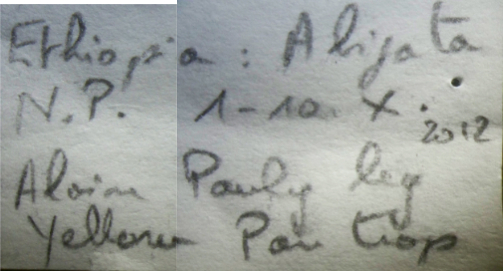 Ethiopia : Abijata
N.P. 1-10. X. 2012
Alain Pauly leg
Yellow Pan trap